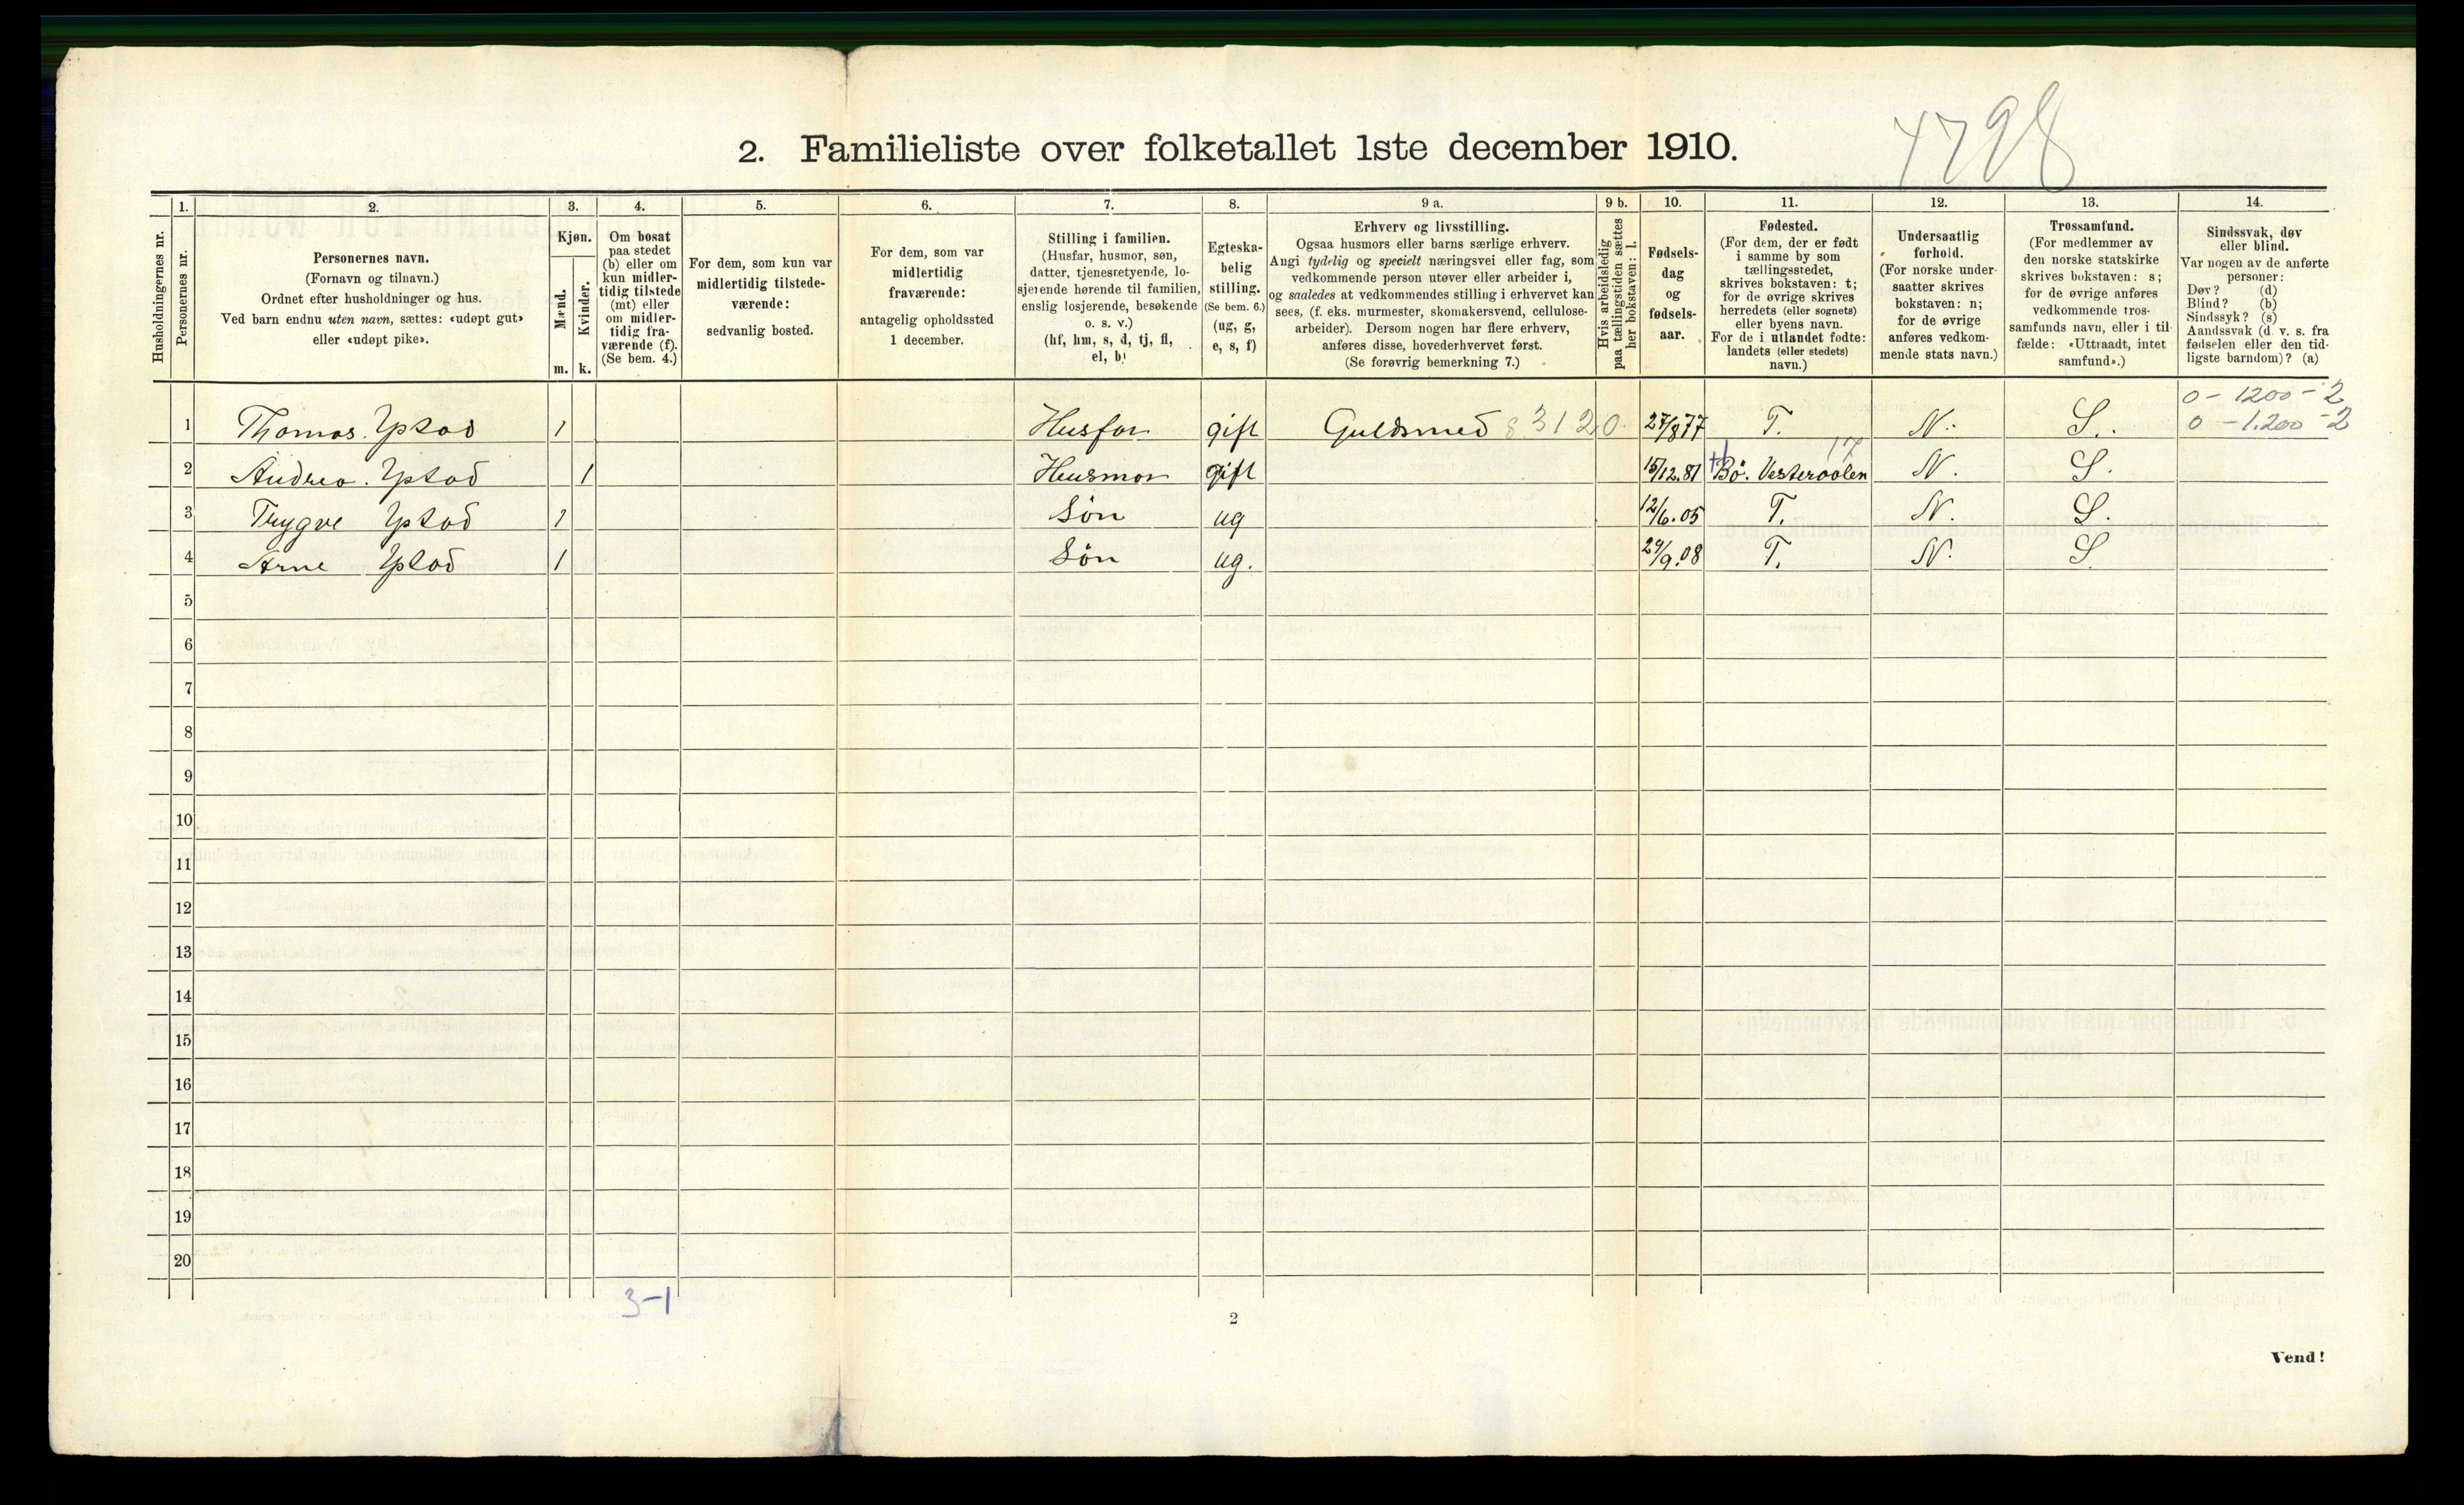 4798
2. Familieliste over folketallet 1ste december 1910.
1. 2. 3. 4. 5. 6. 7. 8. 9 a. 9 b. 10. 11. 12. 13. 14.
Husholdningernes nr.
Personernes nr.
Personernes navn.
(Fornavn og tilnavn.)
Ordnet efter husholdninger og hus.
Ved barn endnu uten navn, sættes: «udøpt gut»
eller «udøpt pike».
Kjøn.
Mænd.
Kvinder.
m. k.
Om bosat
paa stedet
(b) eller om
kun midler-
tidig tilstede
(mt) eller
om midler-
tidig fra-
værende (f).
(Se bem. 4.)
For dem, som kun var
midlertidig tilstede-
værende:
sedvanlig bosted.
For dem, som var
midlertidig
fraværende:
antagelig opholdssted
1 december.
Stilling i familien.
(Husfar, husmor, søn,
datter, tjenestetyende, lo-
sjerende hørende til familien,
enslig losjerende, besøkende
o. s. v.)
(hf, hm, s, d, tj, fl,
el, b)
Egteska-
belig
stilling.
(Se bem. 6.)
(ug, g,
e, s, f)
Erhverv og livsstilling.
Ogsaa husmors eller barns særlige erhverv.
Angi tydelig og specielt næringsvei eller fag, som
vedkommende person utøver eller arbeider i,
og saaledes at vedkommendes stilling i erhvervet kan
sees, (f. eks. murmester, skomakersvend, cellulose-
arbeider). Dersom nogen har flere erhverv,
anføres disse, hovederhvervet først.
(Se forøvrig bemerkning 7.)
Hvis arbeidsledig
paa tællingstiden sættes
her bokstaven: l.
Fødsels-
dag
og
fødsels-
aar.
Fødested.
(For dem, der er født
i samme by som
tællingsstedet,
skrives bokstaven: t;
for de øvrige skrives
herredets (eller sognets)
eller byens navn.
For de i utlandet fødte:
landets (eller stedets)
navn.)
Undersaatlig
forhold.
(For norske under-
saatter skrives
bokstaven: n;
for de øvrige
anføres vedkom-
mende stats navn.)
Trossamfund.
(For medlemmer av
den norske statskirke
skrives bokstaven: s;
for de øvrige anføres
vedkommende tros-
samfunds navn, eller i til-
fælde: «Uttraadt, intet
samfund».)
Sindssvak, døv
eller blind.
Var nogen av de anførte
personer:
Døv? (d)
Blind? (b)
Sindssyk? (s)
Aandssvak (d. v. s. fra
fødselen eller den tid-
ligste barndom)? (a)
0 - 1200 - 2
1 Thomas. Ystad 1 Husfar gift Guldsmed 8312 0. 27/8 77 T. N. S. 0 - 1.200 - 2
17
2 Andrea. Ystad 1 Husmor gift 15/12.81 Bö. Vesteraalen N. S.
3 Trygve Ystad 1 Søn ug 12/6.05 T. N. S.
4 Arne Ystad 1 Søn ug. 29/9.08 T. N. S.
5
6
7
8
9
10
11
12
13
14
15
16
17
18
19
20
3-1
2
Vend!